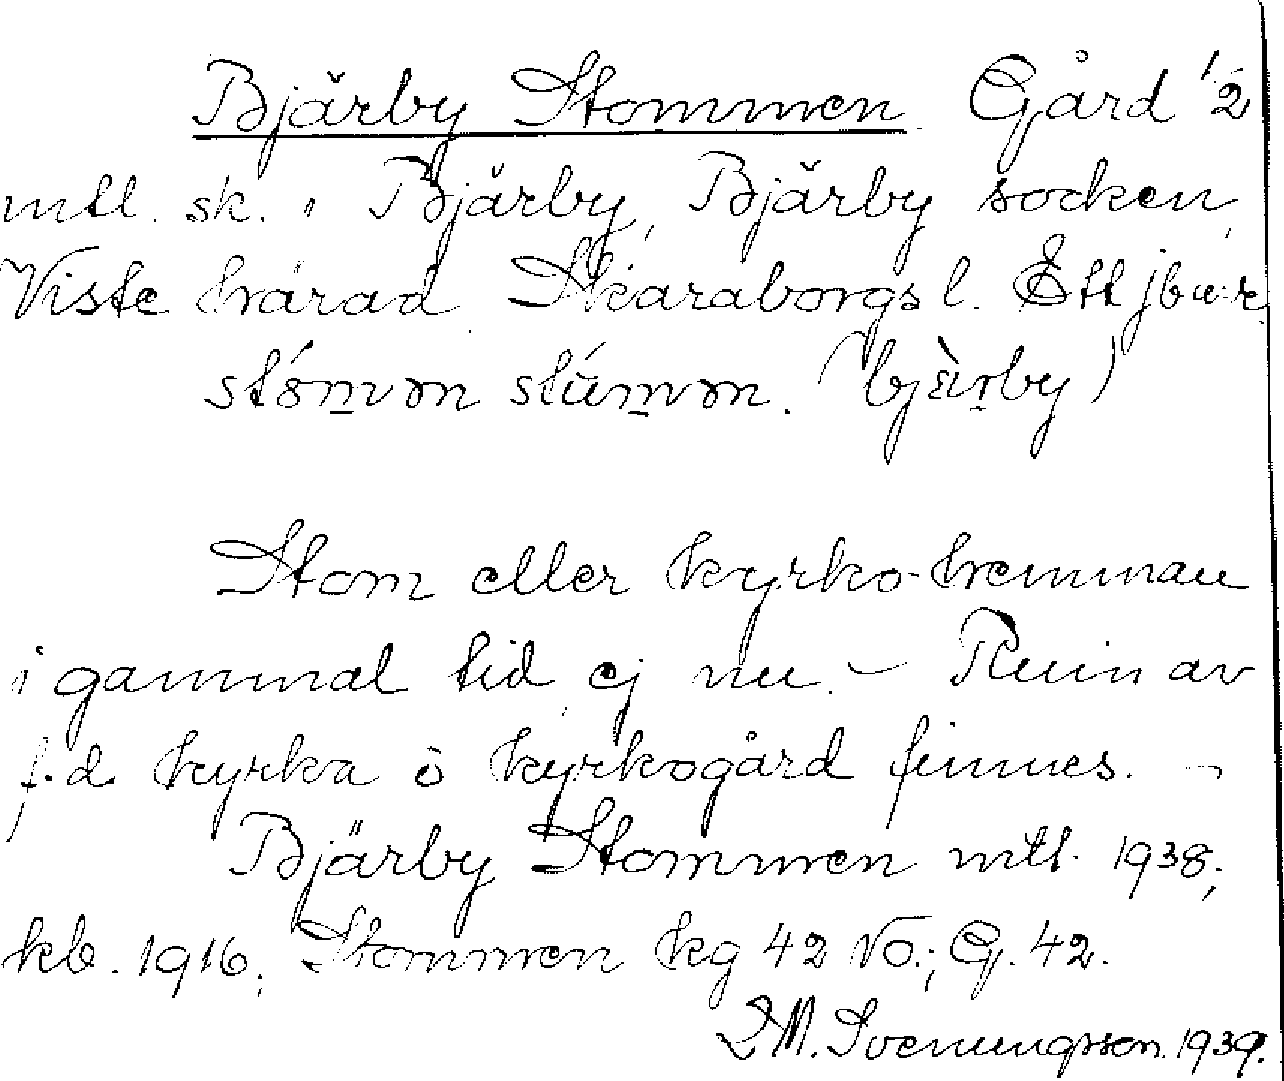 Bjärby Stommen Gård 1/2
mtl. sk. i Bjärby, Bjärby socken,
Viste härad Skaraborgs l. Ett jbr
stǿm̲vən stúm̲vən. (bjæ̀r̲by)
Stom eller kyrko-hemman
i gammal tid ej nu. - Ruin av
f.d. kyrka o kyrkogård finnes. -
Bjärby Stommen mtl. 1938;
kb. 1916; Stommen kg 42 NO.; G. 42.
M. Svenungsson 1939.